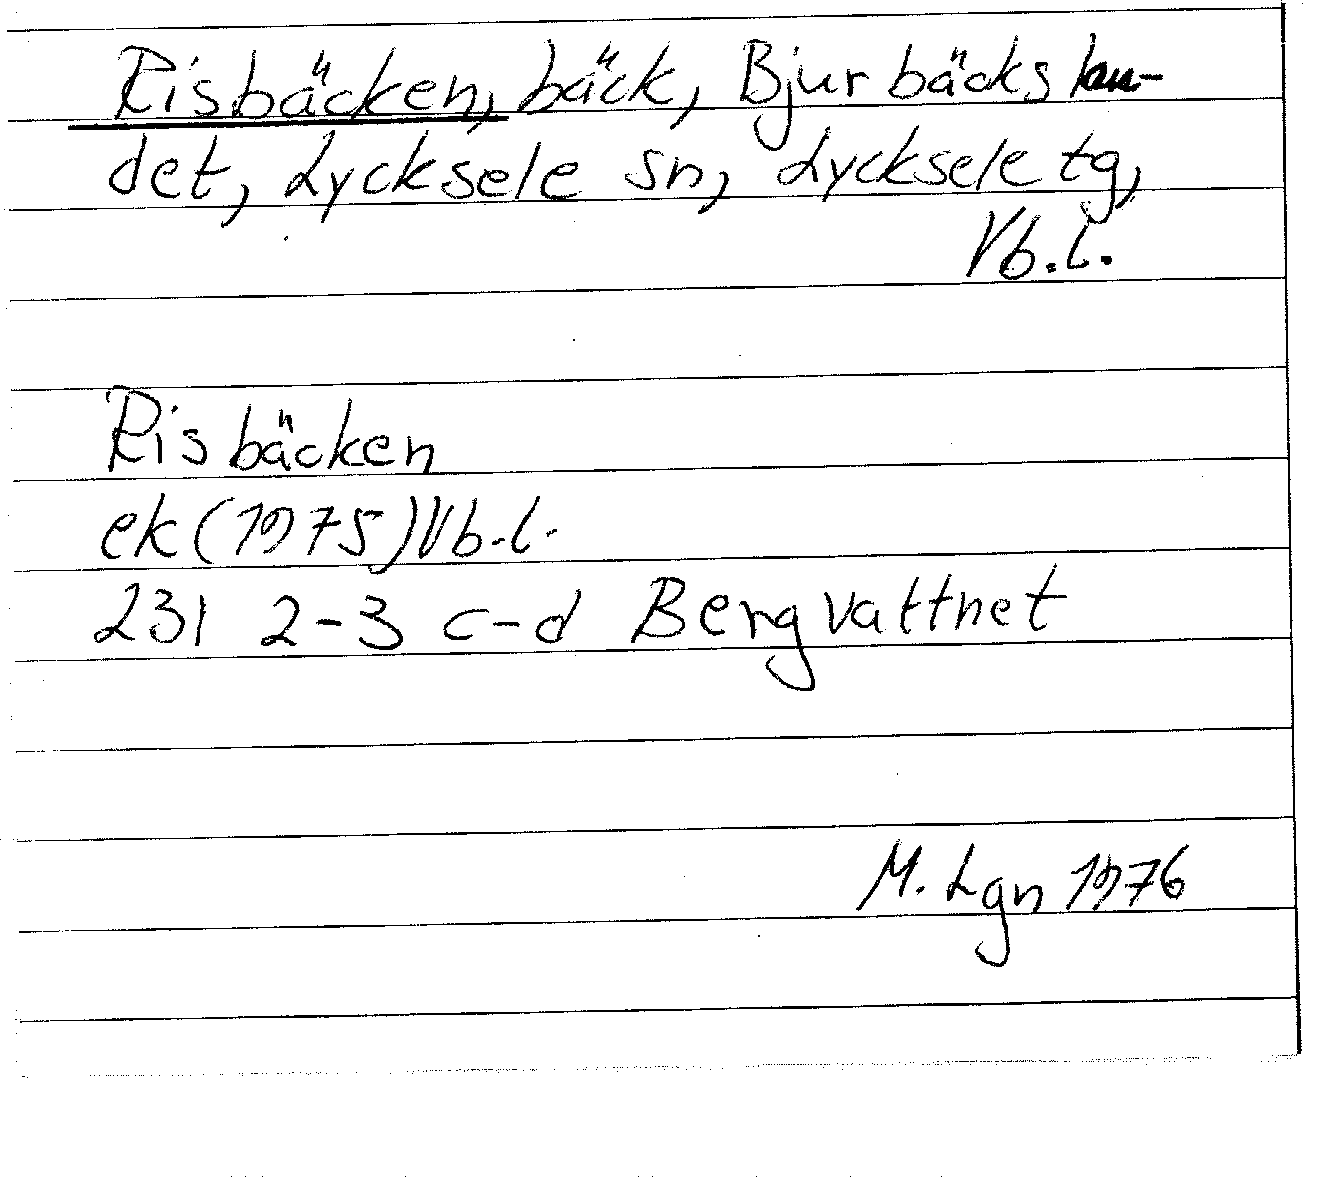 Risbäcken, bäck, Bjurbäckslan-
det, Lycksele sn, Lycksele tg,
Vb.l.
Risbäcken
ek (1975) Vb.l.
231 2-3 c-d Bergvattnet
M. Lgn 1976